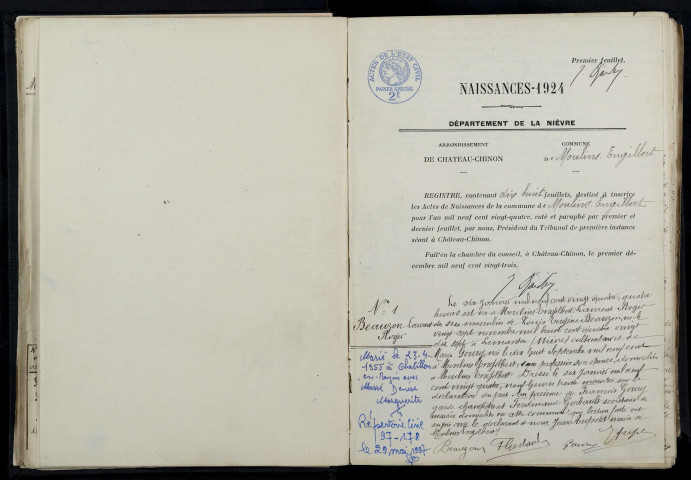 Premier feuillet.
ACTES DE L'ÉTAT CIVIL
PAPIER SPÉCIAL
2F
NAISSANCES-1924
DÉPARTEMENT DE LA NIÈVRE
ARRONDISSEMENT
DE CHATEAU-CHINON
COMMUNE
de Moulins Engilbert
REGISTRE, contenant dix huit feuillets, destiné à inscrire
les Actes de Naissances de la commune de Moulins Engilbert
pour l'an mil neuf cent vingt-quatre, coté et paraphé par premier et
dernier feuillet, par nous, Président du Tribunal de première instance
séant à Château-Chinon.
Fait en la chambre du conseil, à Château-Chinon, le premier dé-
cembre mil neuf cent vingt-trois.
N° 1
Beauzon Laurent
Roger
Marié le 23-4-
1955 à Chatillon
en-Bazois avec
Denise
Marguerite
Répertoire Civil
97-178
le 29 mai 1997
Le six janvier mil neuf cent vingt quatre, quatre
heures est né à Moulins Engilbert, Laurent Roger
du sexe masculin de Eugène Beauzon, né le
vingt sept novembre mil huit cent quatre vingt
dix sept à (Nièvre) cultivateur et de
Marie née le dix huit septembre mil neuf cent
à Moulins Engilbert, sans profession son épouse, domiciliés
à Moulins Engilbert. Dressé le six janvier mil neuf
cent vingt quatre, neuf heures trente minutes sur la
déclaration du père en présence de François
garde champêtre et Ferdinand secrétaire de
mairie domiciliés en cette commune qui, lecture faite ont
signé avec le déclarant et nous, Jean maire de
Moulins Engilbert.
Beauzon